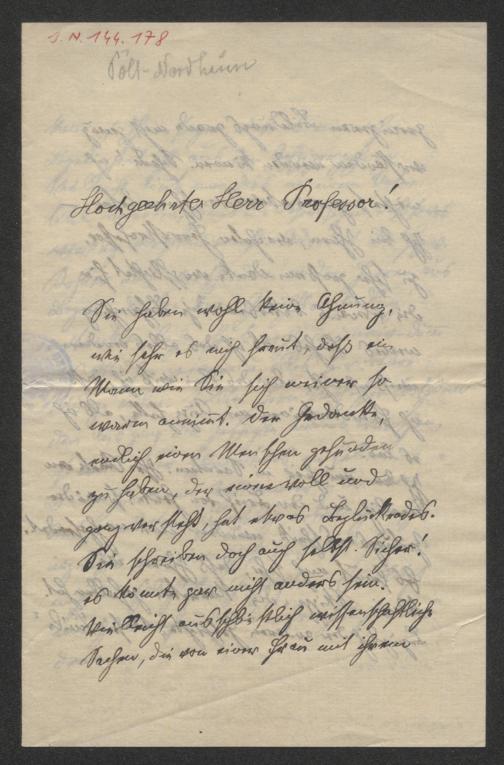 J. N. 144.178
Pölt-Nordheim
Hochgeehrter Herr Professor!
Sie haben wohl keine Ahnung,
wie sehr es mich freut, daß ein
Mann wie Sie sich meiner so
warm annimmt. Der Gedanke,
endlich einen Menschen gefunden
zu haben, der einen voll und
ganz versteht, hat etwas Beglückendes.
Sie schreiben doch auch selbst. Sicher!
es könnte gar nicht anders sein.
Vielleicht ausschließlich wissenschaftliche
Sachen, die von einer Frau mit ihrem